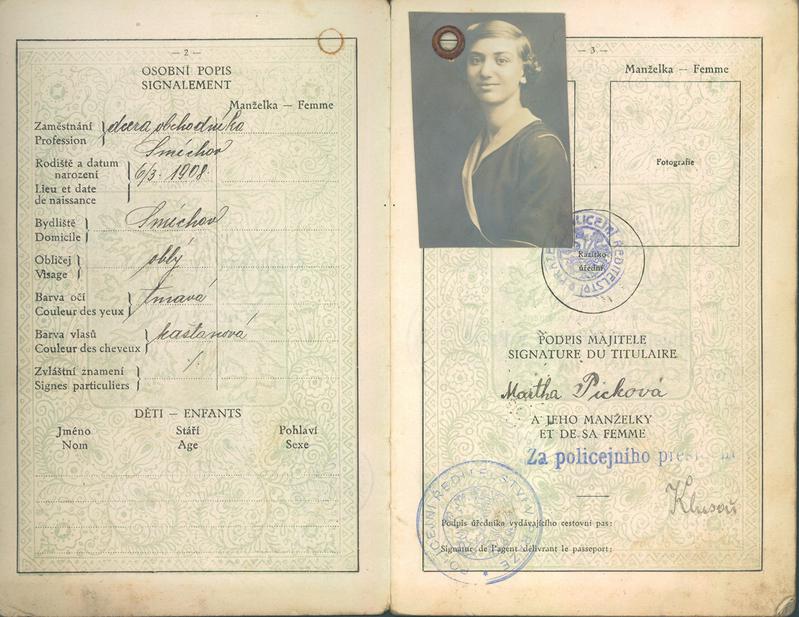 — 2 —
OSOBNÍ POPIS
SIGNALEMENT
Manželka — Femme
Zaměstnání
Profession
dcera obchodníka
Rodiště a datum
narození
Lieu et date
de naissance
Smíchov
6/3. 1908.
Bydliště
Domicile
Smíchov
Obličej
Visage
oblý
Barva očí
Couleur des yeux
tmavá
Barva vlasů
Couleur des cheveux
kaštanová
Zvláštní znamení
Signes particuliers
./.
DĚTI — ENFANTS
Jméno Stáří Pohlaví
Nom Age Sexe
— 3 —
Manželka — Femme
Fotografie
POLICEJNÍ ŘEDITELSTVÍ
Razítko
úřední
PODPIS MAJITELE
SIGNATURE DU TITULAIRE
Martha Picková
A JEHO MANŽELKY
ET DE SA FEMME
Za policejního
POLICEJNÍ ŘEDITELSTVÍ V PRAZE
Podpis úředníka vydávajícího cestovní pas:
Signatur de l'agent délivrant le passeport: